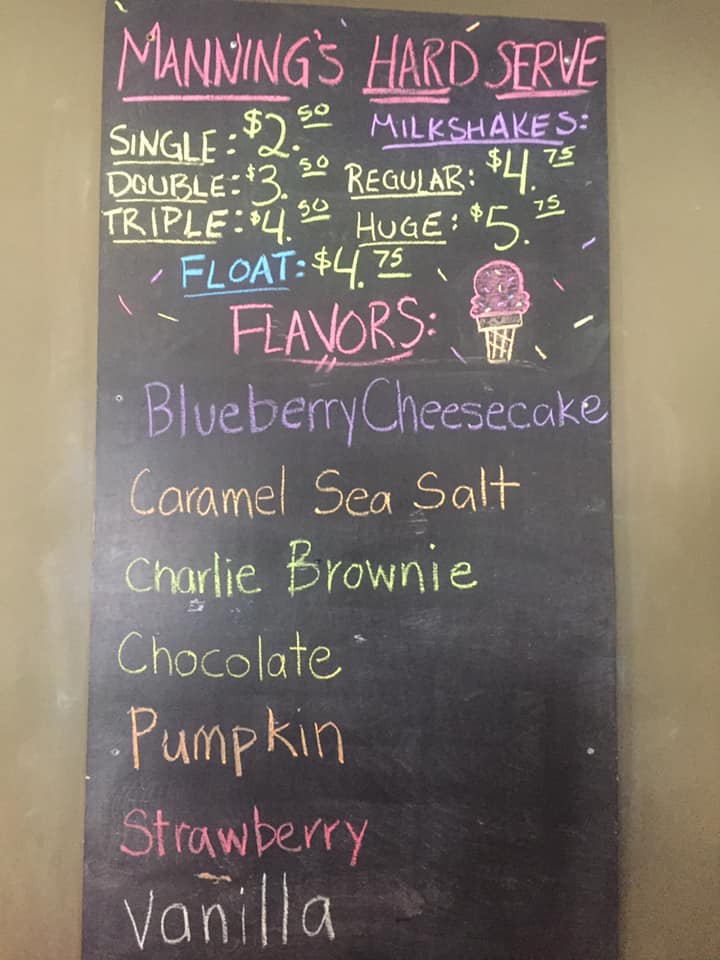 MANNING'S HARD SERVE
SINGLE: $2.50
DOUBLE: $3.50
TRIPLE: $4.50
MILKSHAKES:
REGULAR: $4.75
HUGE: $5.75
FLOAT: $4.75
FLAVORS:
Blueberry Cheesecake
Caramel Sea Salt
Charlie Brownie
Chocolate
Pumpkin
Strawberry
Vanilla